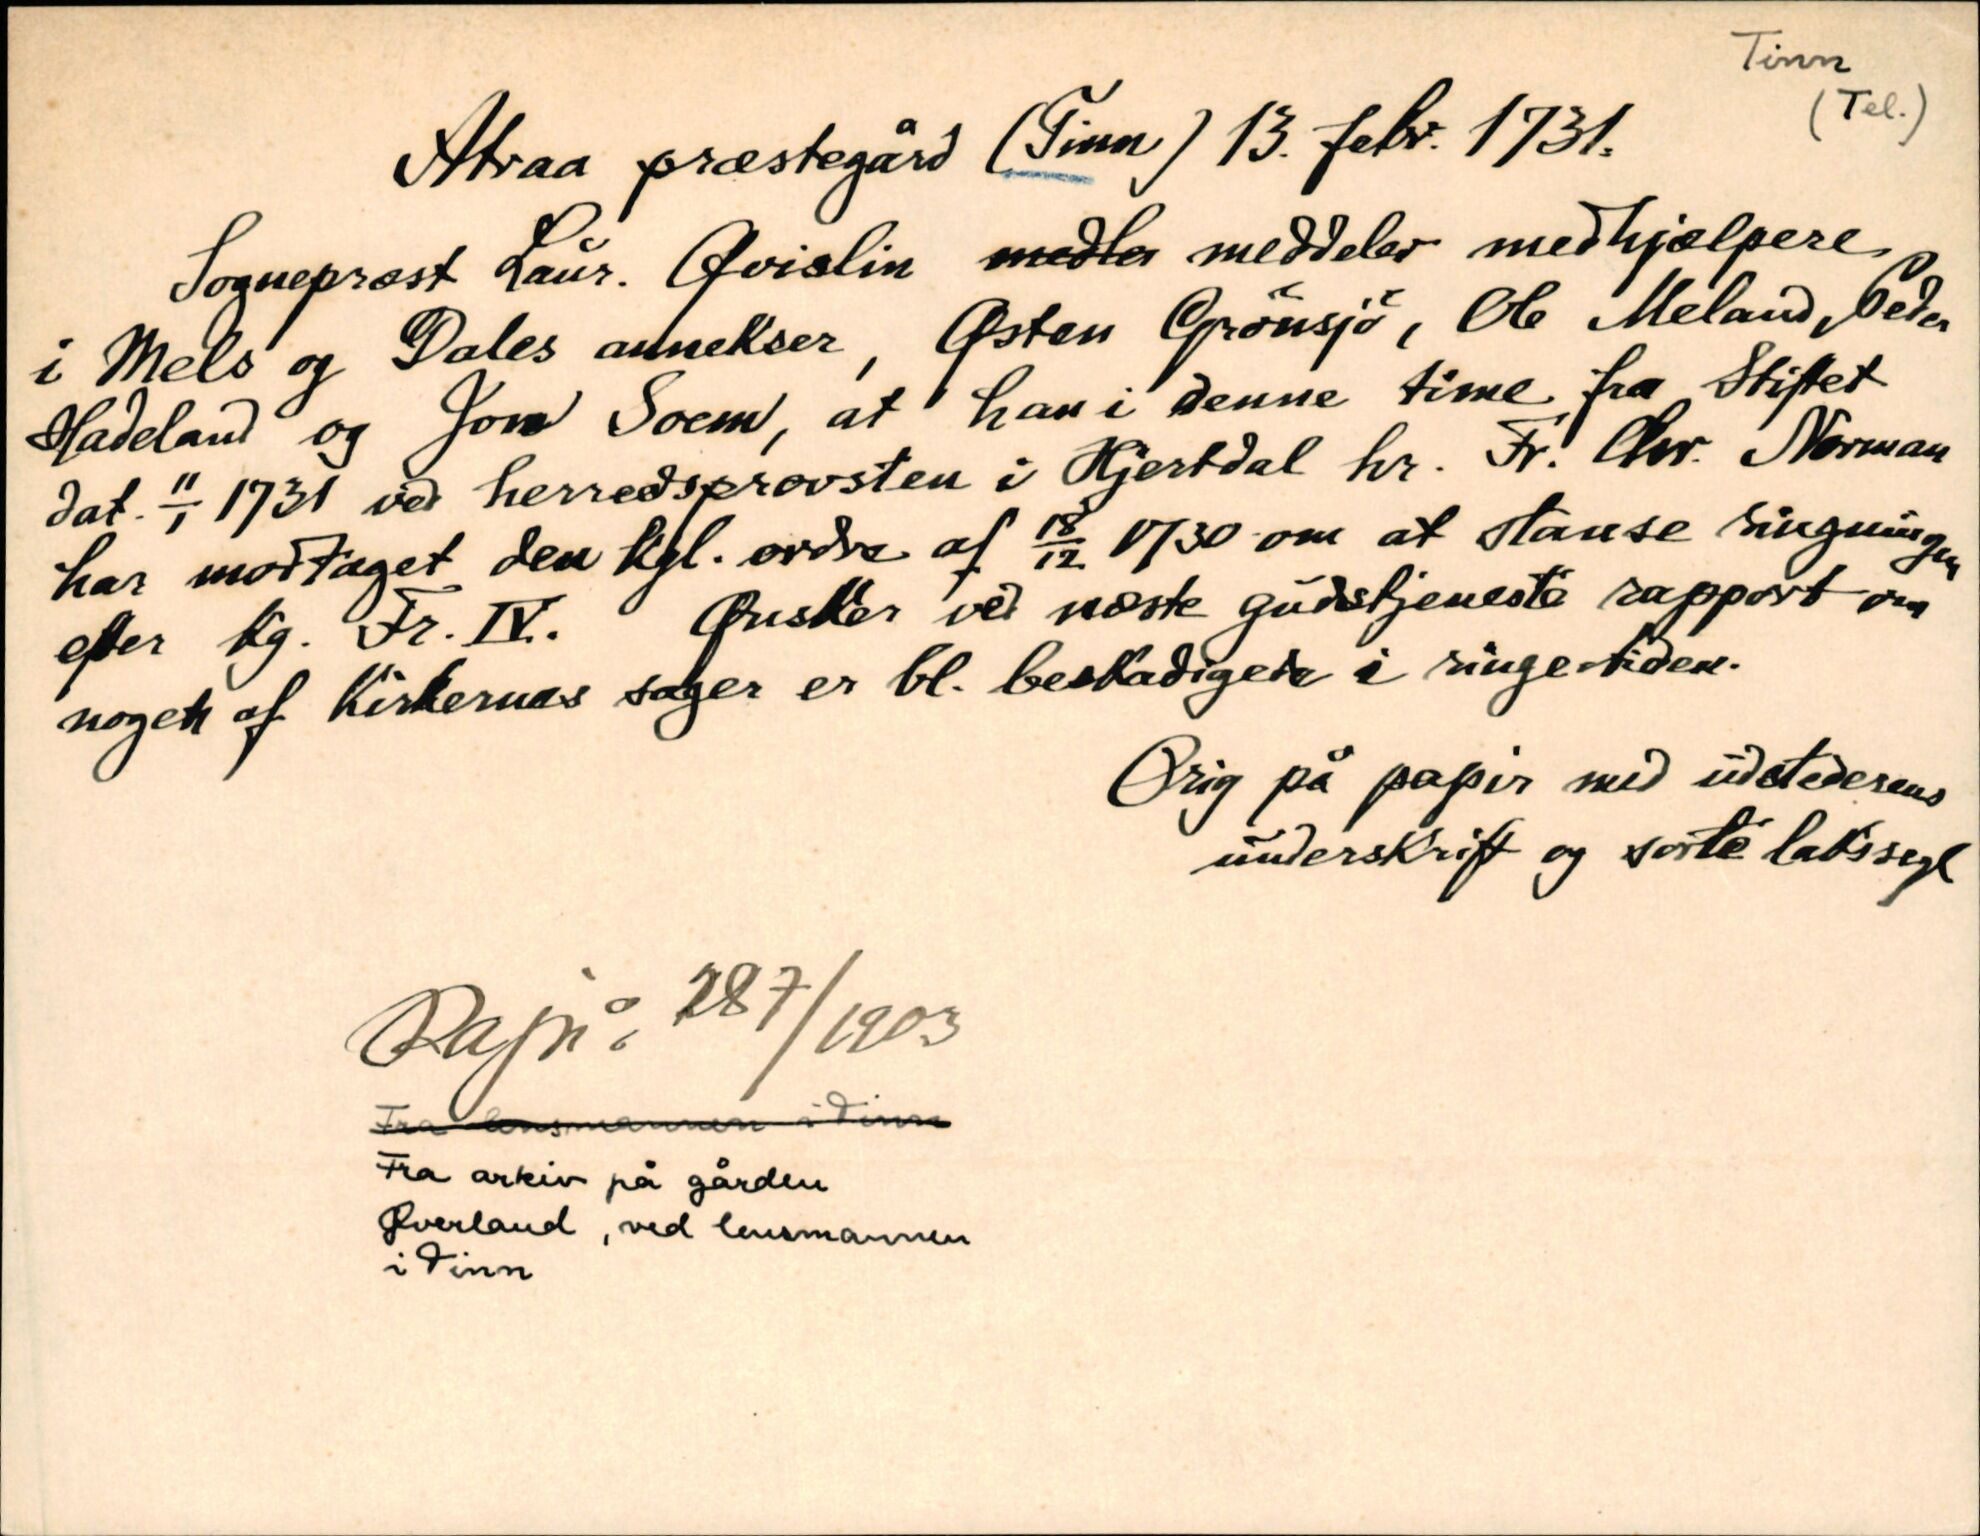 Tinn
(Tel.)
Atraa præstegård (Tinn) 13. febr. 1731.
Sognepræst Laur. Qvislin medler meddeler medhjælpere
i Mels og Dales annekser, Østen Grönsjö, Ole Meland, Peder
Hadeland og Jon Soem, at han i denne time fra Stiftet
dat. 11/1 1731 ved herredsprovsten i Hjertdal hr. Fr. Chr. Norman
har modtaget den kgl. ordre af 18/12 1730 om at stanse ringningen
efter kg. Fr. IV. Ønsker ved næste gudstjeneste rapport om
noget af kirkernes sager er bl. beskadigede i ringetiden.
Orig på papir med udstederens
underskrift og sorte lakssegl
287/1903
Fra lensmannen i Tinn
Fra arkiv på gården
Øverland, ved lensmannen
i Tinn